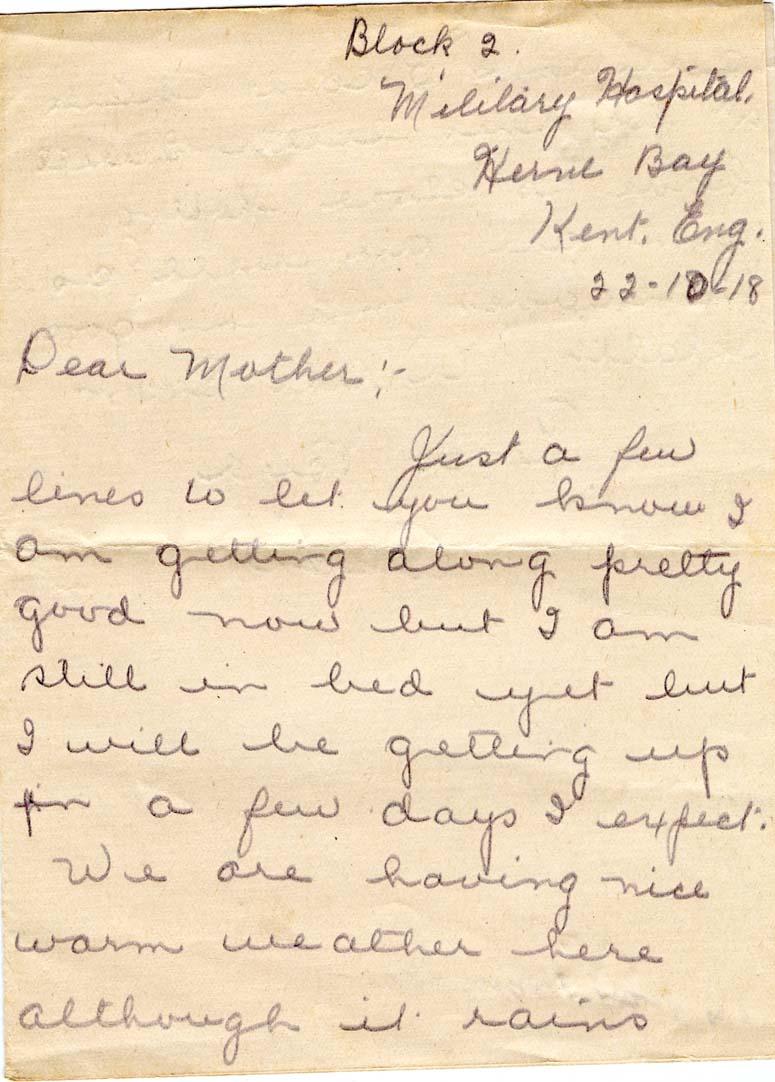 Block 2.
Military Hospital.
Herne Bay
Kent. Eng.
22-10-18
Dear Mother:-
Just a few
lines to let you know I
am getting along pretty
good now but I am
still in bed yet but
I will be getting up
in a few days I expect.
We are having nice
warm weather here
although it rains